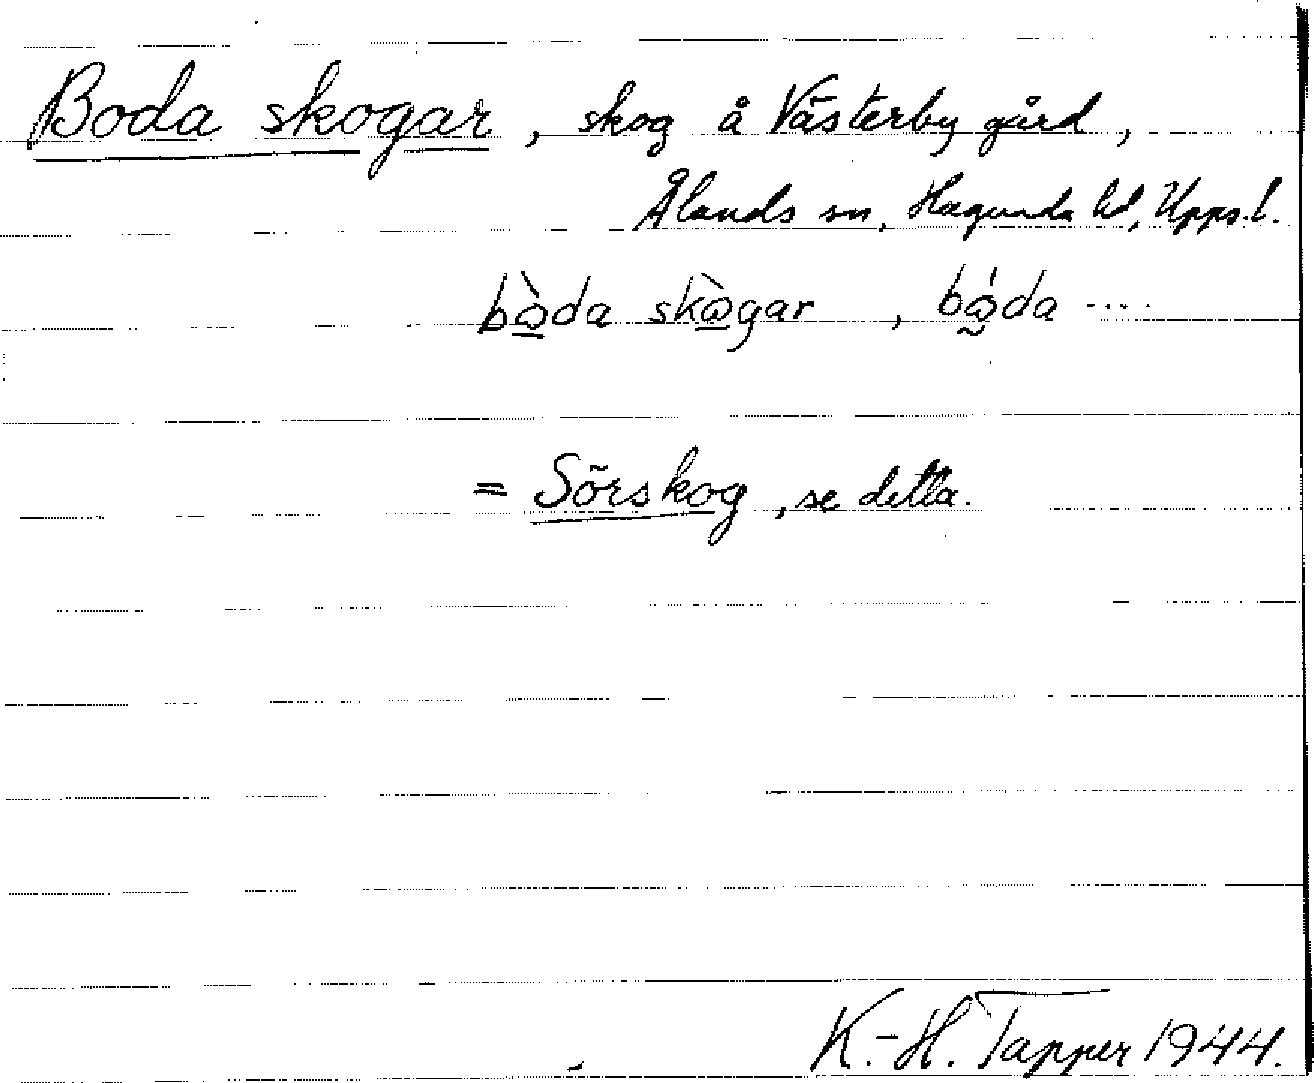 Boda skogar, skog å Västerby gård,
Ålands sn, Hagunda hd, Upps. l.
bɷ̀da skɷ̀gar, bɷ́da ....
= Sörskog, se detta.
K.-H. Tapper 1944.